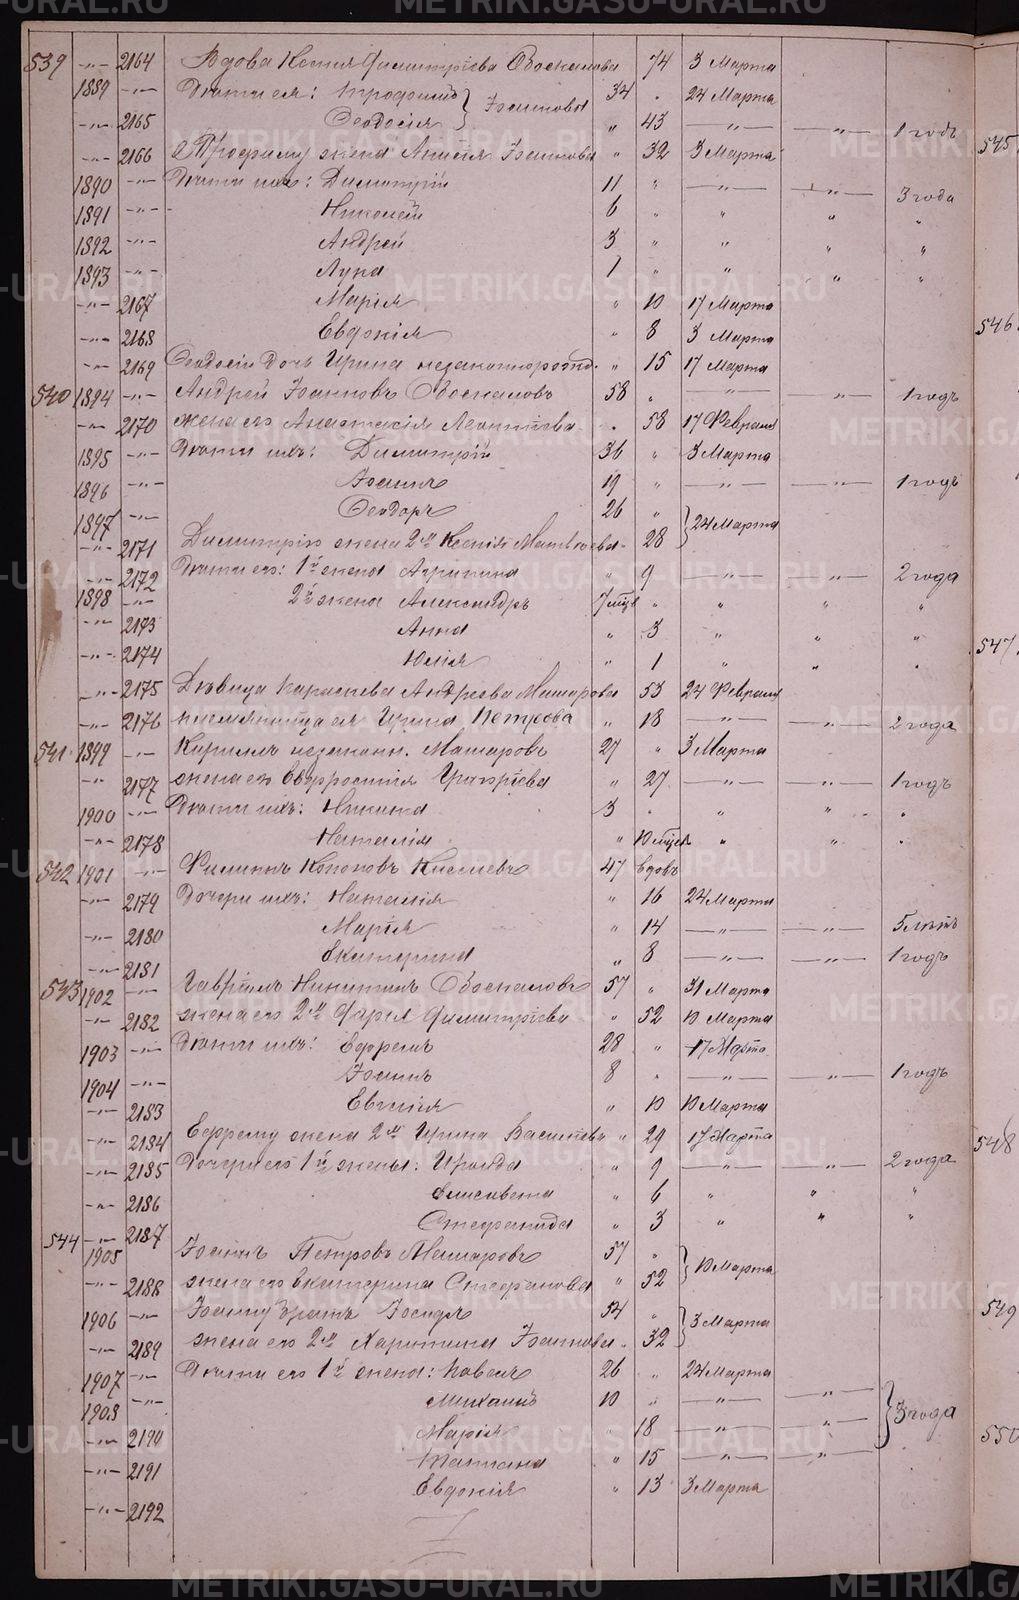 539 -„- 2164 Вдова Ксенія Димитріева 74 3 Марта
1889 -„- Дѣти ея: Трофимъ } Іоанновы 34 „ 24 Марта
-„- 2165 Ѳеодосія „ 43 -„- -„- 1 годъ
-„- 2166 жена Іоаннова „ 32 3 Марта
1890 -„- Дѣти ихъ: Димитрій 11 „ -„- -„- 3 года
1891 -„- Николай 6 „ „ „ „
1892 -„- Андрей 3 „ „ „ „
1893 -„- Лука 1 „ „ „ „
-„- 2167 Марія „ 10 17 Марта
-„- 2168 Евдокія „ 8 3 Марта
-„- 2169 Ѳеодосіи дочь Ирина незаконнорожд. „ 15 17 Марта
540 1894 -„- Андрей Іоанновъ 58 „ -„- -„- 1 годъ
-„- 2170 жена его Анастасія Леонтіева „ 58 17 Февраля
1895 -„- Дѣти ихъ: Димитрій 36 „ 3 Марта
1896 -„- Іоаннъ 19 „ -„- -„- 1 годъ
1897 -„- Ѳеодоръ 26 „ } 24 Марта
-„- 2171 Димитрія жена 2я Ксенія Матвѣева „ 28
-„- 2172 Дѣти его: 1й жены Агрипина „ 9 -„- -„- 2 года
1898 -„- 2й жены Александръ 7 мцъ „ „ „ „
-„- 2173 Анна „ 3 „ „ „
-„- 2174 Юлія „ 1 „ „ „
-„- 2175 Дѣвица Параскева Андреева Машарова 53 24 Февраля
-„- 2176 племянница ея Ирина Петрова „ 18 -„- -„- 2 года
541 1899 -„- Кириллъ незакон. Машаровъ 27 „ 3 Марта
-„- 2177 жена его Евфросинія „ 27 -„- -„- 1 годъ
1900 -„- Дѣти ихъ: Никита 3 „ „ „ „
-„- 2178 Наталія „ 10 мцев „ „ „
542 1901 -„- Филиппъ Кононовъ 47 вдовъ
-„- 2179 Дочери ихъ: Наталія „ 16 24 Марта
-„- 2180 Марія „ 14 -„- -„- 5 лѣтъ
-„- 2181 Екатерина „ 8 -„- -„- 1 годъ
543 1902 -„- Гавріилъ Никитинъ 57 „ 31 Марта
-„- 2182 жена его 2я Димитріева „ 52 10 Марта
1903 -„- Дѣти ихъ: Ефремъ 28 „ 17 Марта
1904 -„- Іоаннъ 8 „ -„- -„- 1 годъ
-„- 2183 Евгенія „ 10 10 Марта
-„- 2184 Ефрему жена 2я Ирина „ 29 17 Марта
-„- 2185 Дочери его 1й жены: Ираида „ 9 -„- -„- 2 года
-„- 2186 Елисавета „ 6 „ „ „
-„- 2187 Стефанида „ 3 „ „ „
544 1905 Іоаннъ Петровъ Машаровъ 57 „ } 10 Марта
-„- 2188 жена его Екатерина Стефанова „ 52
1906 -„- Іоанну братъ Іосифъ 54 „ } 3 Марта
-„- 2189 жена его 2я Харитина Іоаннова „ 32
1907 -„- Дѣти его 1й жены: Павелъ 26 „ 24 Марта
1908 -„- Михаилъ 10 „ -„- -„- } 3 года
-„- 2190 Марія „ 18 -„- -„-
-„- 2191 Татіана „ 15 -„- -„-
-„- 2192 Евдокія „ 13 3 Марта
545.
546.
547.
548
549
550
METRIKI.GASO-URAL.RU